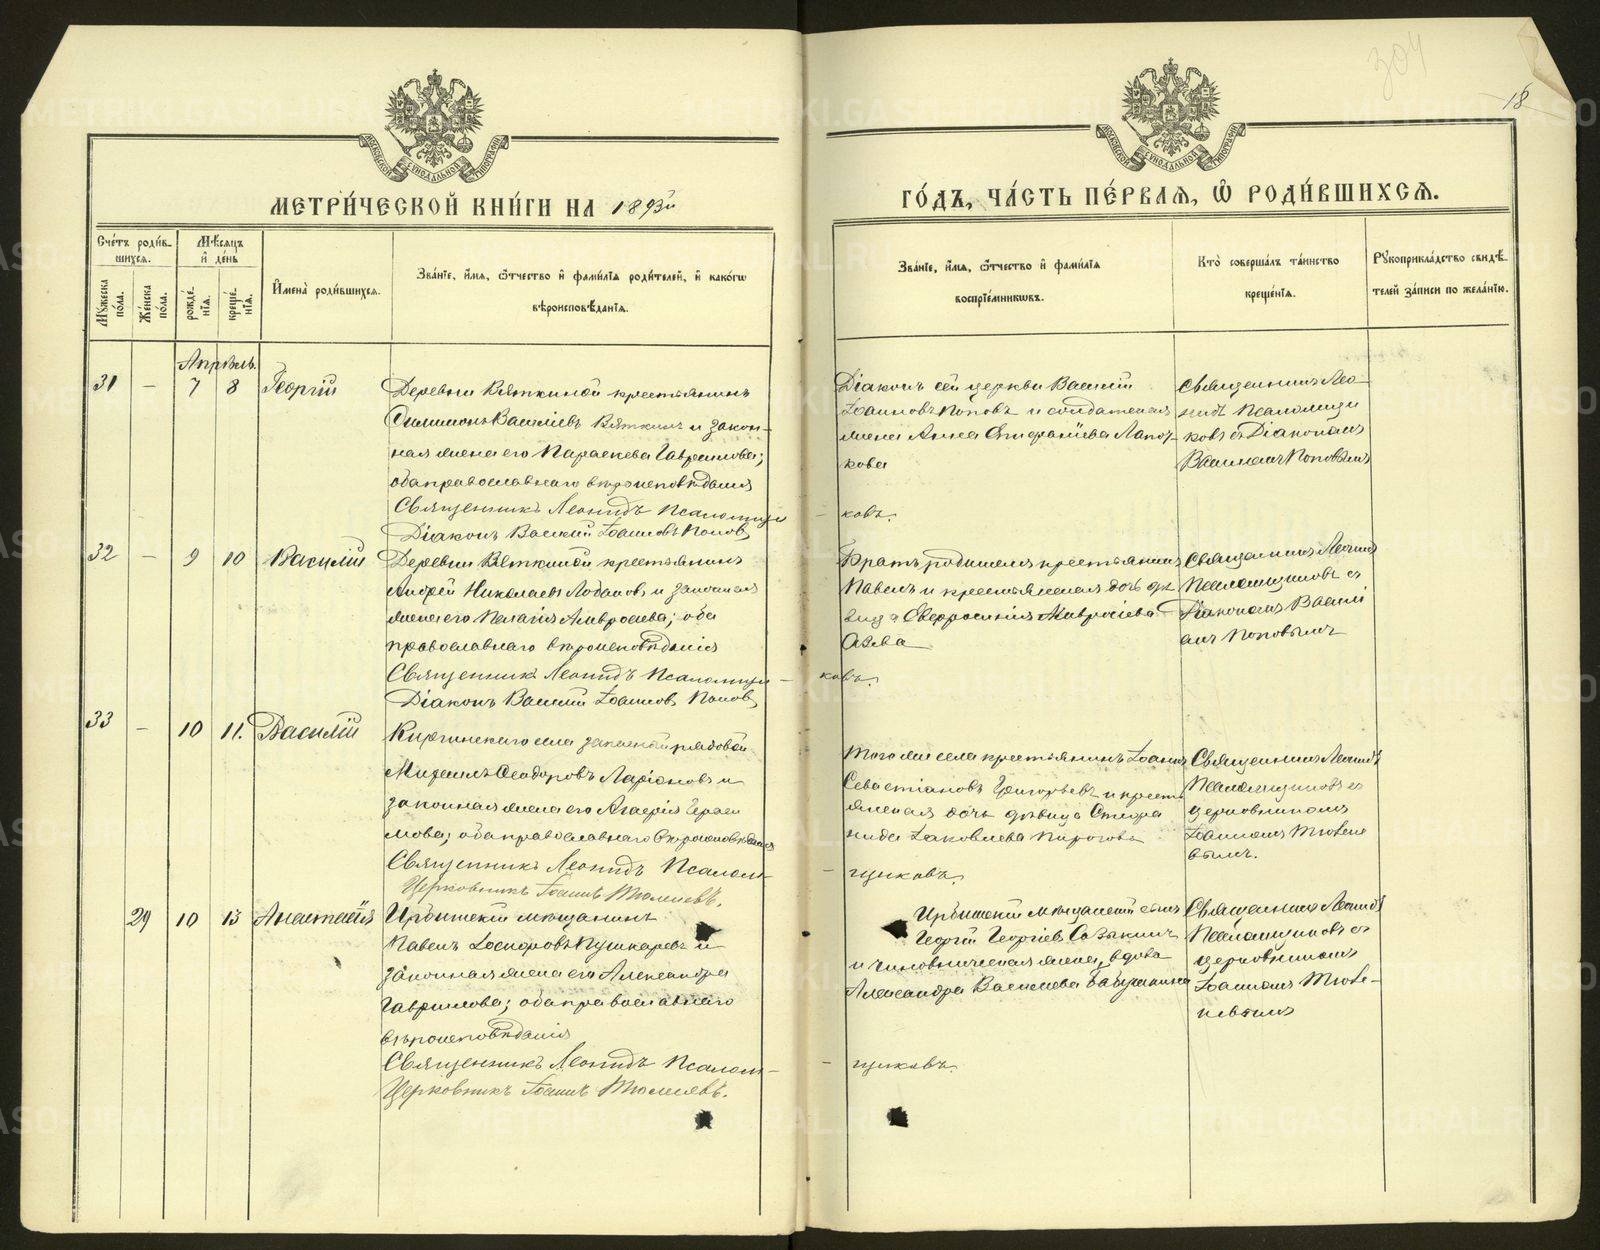 304
18
МОСКОВСКОЙ СѴНОДАЛЬНОЙ ТИПОГРАФІИ
МОСКОВСКОЙ СѴНОДАЛЬНОЙ ТИПОГРАФІИ
МЕТРИ́ЧЕСКОЙ КНИ́ГИ НА 1893й
ГО́ДЪ, ЧА́СТЬ ПЕ́РВАѦ, Ѿ РОДИ́ВШИХСѦ.
Сче́тъ роди́в-
шихсѧ.
Мѣ́сяцъ
и҆ де́нь
Мꙋ́жеска по́ла.
Же́нска по́ла.
рожде́нїѧ.
креще́нїѧ.
И҆мена̀ роди́вшихсѧ.
Зва́нїе, и҆́мѧ, ѻ҆́тчество и҆ фами́лїѧ роди́телей, и҆ како́гѡ
вѣроисповѣ́данїѧ.
Зва́нїе, и҆́мѧ, ѻ҆́тчество и҆ фами́лїѧ
воспрїе́мникѡвъ.
Кто̀ соверша́лъ та́инство
креще́нїѧ.
Рꙋкоприкла́дство свидѣ́-
телей за́писи по жела́нїю.
Апрѣль.
31 — 7 8 Георгій
Деревни Вяткиной крестьянинъ
Филимонъ Василіевъ Вяткинъ и закон-
ная жена его Параскева Гавриилова;
оба православнаго вѣроисповѣданія
Священникъ Леонидъ Псаломщи
Діаконъ Василій Іоанновъ Поповъ
Діаконъ сей церкви Василій
Іоанновъ Поповъ и солдатская
жена Анна
кова
ковъ.
Священникъ Лео-
нидъ Псаломщи
ковъ съ Діакономъ
Василіемъ Поповымъ
32 — 9 10 Василій
Деревни Вяткиной крестьянинъ
Андрей Николаевъ Лобановъ и законная
жена его Пелагія Амвросіева; оба
православнаго вѣроисповѣданія
Священникъ Леонидъ Псаломщи -
Діаконъ Василій Іоанновъ Поповъ
Братъ родителя крестьянинъ
Павелъ и крестьянская дочь дѣ
вица Евфросинія Амвросіева
ковъ.
Священникъ Леонидъ
Псаломщиковъ съ
Діакономъ Василі
емъ Поповымъ
33 — 10 11. Василій
Киргинскаго села запасной рядовой
Михаилъ Ѳеодоровъ Ларіоновъ и
законная жена его Агаѳія Гераси
мова; оба православнаго вѣроисповѣданія
Священникъ Леонидъ Псалом-
Церковникъ Іоаннъ Тюленевъ.
Того же села крестьянинъ Іоаннъ
Севастіановъ Григорьевъ и кресть
янская дочь дѣвица Степа
нида Іаковлева Пирогова
щиковъ.
Священникъ Леонидъ
Псаломщиковъ съ
церковникомъ
Іоанномъ Тюлене
вымъ.
29 10 13 Анастасія
Ирбитскій мѣщанинъ
Павелъ Пушкаревъ и
законная жена его Александра
Гавриилова; оба православнаго
вѣроисповѣданія
Священникъ Леонидъ Псалом-
Церковникъ Іоаннъ Тюленевъ.
Ирбитскій мѣщанскій сынъ
Георгій Георгіев Сазыкинъ
и чиновническая жена, вдова
Александра Василіева Бабушкина
- щиковъ.
Священникъ Леонидъ
Псаломщиковъ съ
церковникомъ
Іоанномъ Тюле-
невымъ
METRIKI.GASO-URAL.RU